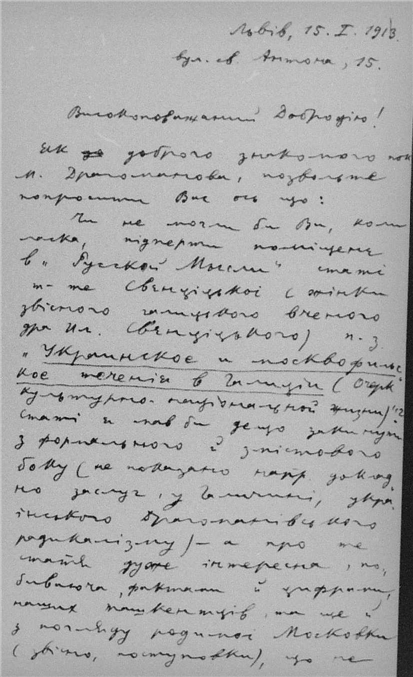 Львів, 15. I. 1913.
вул. св. Антона, 15.
Високоповажаний Добродію!
Як доброго знакомого пок.
М. Драгоманова, позвольте
попросити Вас ось що:
Чи не могли би Ви, коли
ласка, підперти поміщенє
в „Русской Мысли" статі
т-те Свєнціцької (жінки
звісного галицького вченого
дра Іл. Свєнціцького) п. з.
„Украинское и москвофильс-
кое течения в Галиции (Очерк
культурно-национальной жизни)"?
Статі я мав би дещо закинути
з формального й змістового
боку (не показано напр. доклад-
но заслуг, у Галичині, укра-
їнського Драгоманівського
радикалізму) – а про те
статя дуже інтересна, по-
биваюча, фактами й цифрами,
наших ташкентців, та ще й
з погляду родимої Московки
(звісно, поступовки), що не